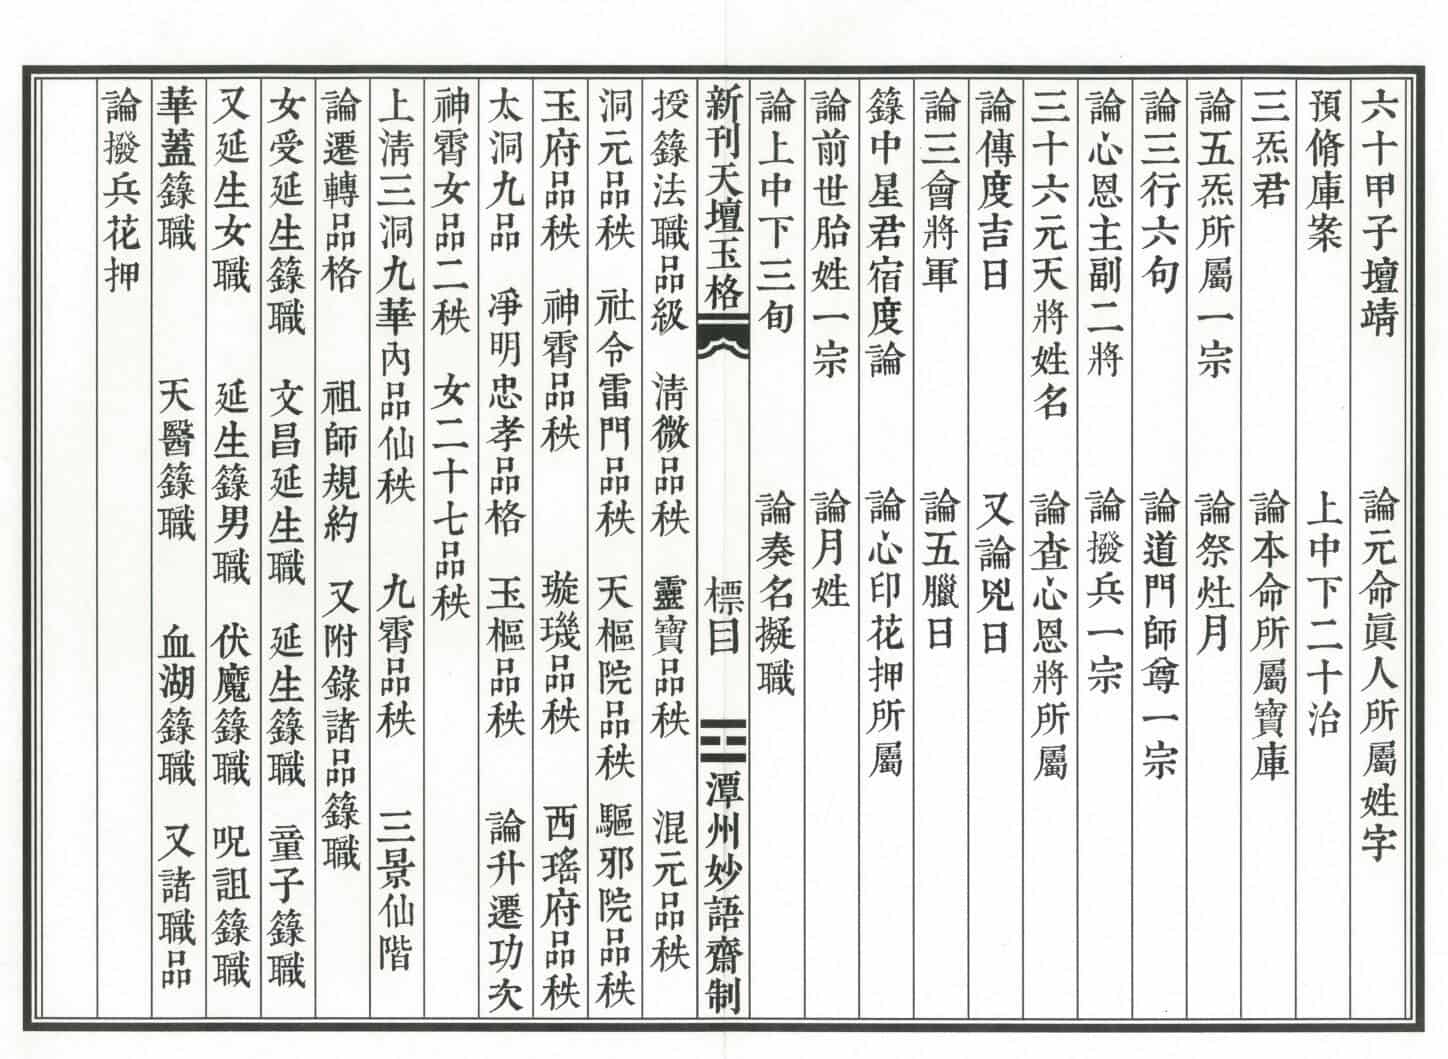 六十甲子壇靖　論元命眞人所屬姓字
預脩庫案　上中下二十治
三炁君　論本命所屬寶庫
論五炁所屬一宗　論祭灶月
論三行六句　論道門師尊一宗
論心恩主副二將　論撥兵一宗
三十六元天將姓名　論查心恩將所屬
論傳度吉日　又論兇日
論三會將軍　論五臘日
籙中星君宿度論　論心印花押所屬
論前世胎姓一宗　論月姓
論上中下三旬　論奏名擬職
新刊天壇玉格　標目　潭州妙語齋制
授籙法職品級　清微品秩　靈寶品秩　混元品秩
洞元品秩　社令雷門品秩　天樞院品秩　驅邪院品秩
玉府品秩　神霄品秩　璇璣品秩　西瑤府品秩
太洞九品　淨明忠孝品格　玉樞品秩　論升遷功次
神霄女品二秩　女二十七品秩
上清三洞九華內品仙秩　九霄品秩　三景仙階
論遷轉品格　祖師規約　又附錄諸品籙職
女受延生籙職　文昌延生職　延生籙職　童子籙職
又延生女職　延生籙男職　伏魔籙職　呪詛籙職
華蓋籙職　天醫籙職　血湖籙職　又諸職品
論撥兵花押